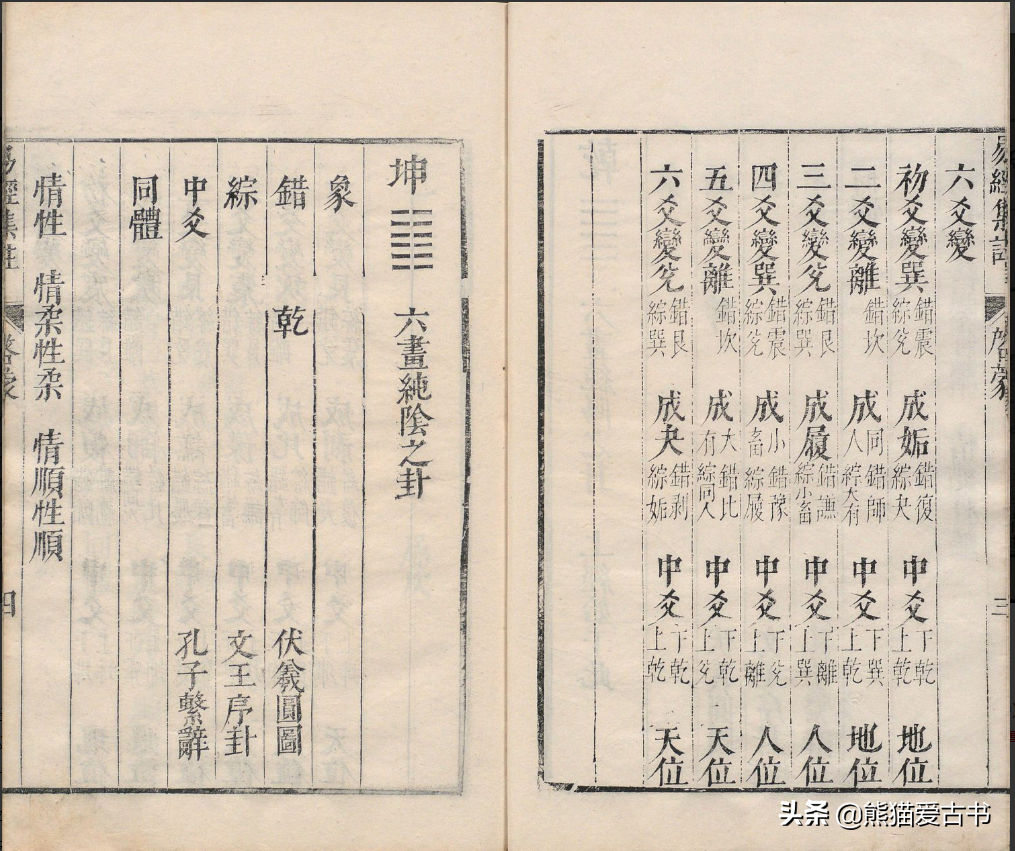 易經集註 啓蒙 三
六爻變
初爻變巽 錯震綜兌 成姤 錯復綜夬 中爻 下乾上乾 地位
二爻變離 錯坎 成同人 錯師綜大有 中爻 下巽上乾 地位
三爻變兌 錯艮綜巽 成履 錯謙綜小畜 中爻 下離上巽 人位
四爻變巽 錯震綜兌 成小畜 錯豫綜履 中爻 下兌上離 人位
五爻變離 錯坎 成大有 錯比綜同人 中爻 下乾上兌 天位
六爻變兌 錯艮綜巽 成夬 錯剥綜姤 中爻 下乾上乾 天位
坤 ䷁ 六畫純陰之卦
象
錯 乾 伏羲圓圖
綜 文王序卦
中爻 孔子繫辭
同體
情性 情柔性柔 情順性順
易經集註 啓蒙 四
头条 @熊猫爱古书